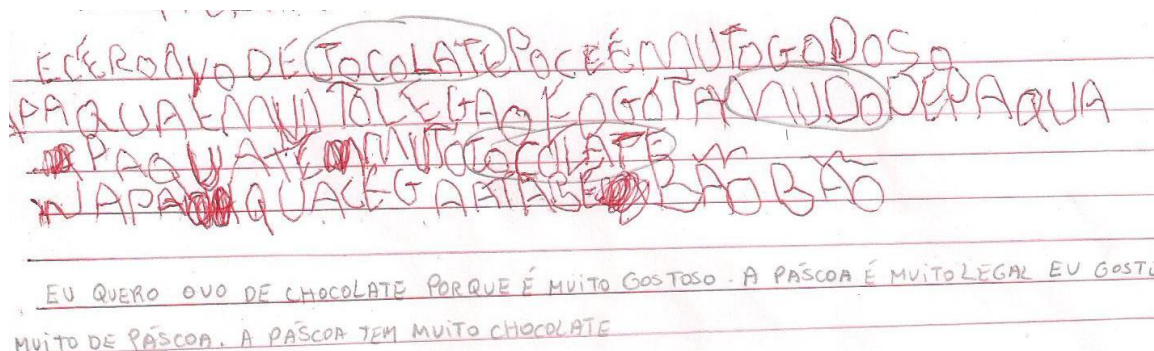 ECÉRO OVO DÉ TOCOLATE POCE É MUTO GODOSO
PAQUA E MUITO LEGAO E O GOTA MUDO DE PAQUA
PAQUA TE MUTO TOCOLATE
NA PAQUA CEGA BÃO BÃO
EU QUERO OVO DE CHOCOLATE PORQUE É MUITO GOSTOSO. A PÁSCOA É MUITO LEGAL EU GOSTO
MUITO DE PÁSCOA. A PÁSCOA TEM MUITO CHOCOLATE